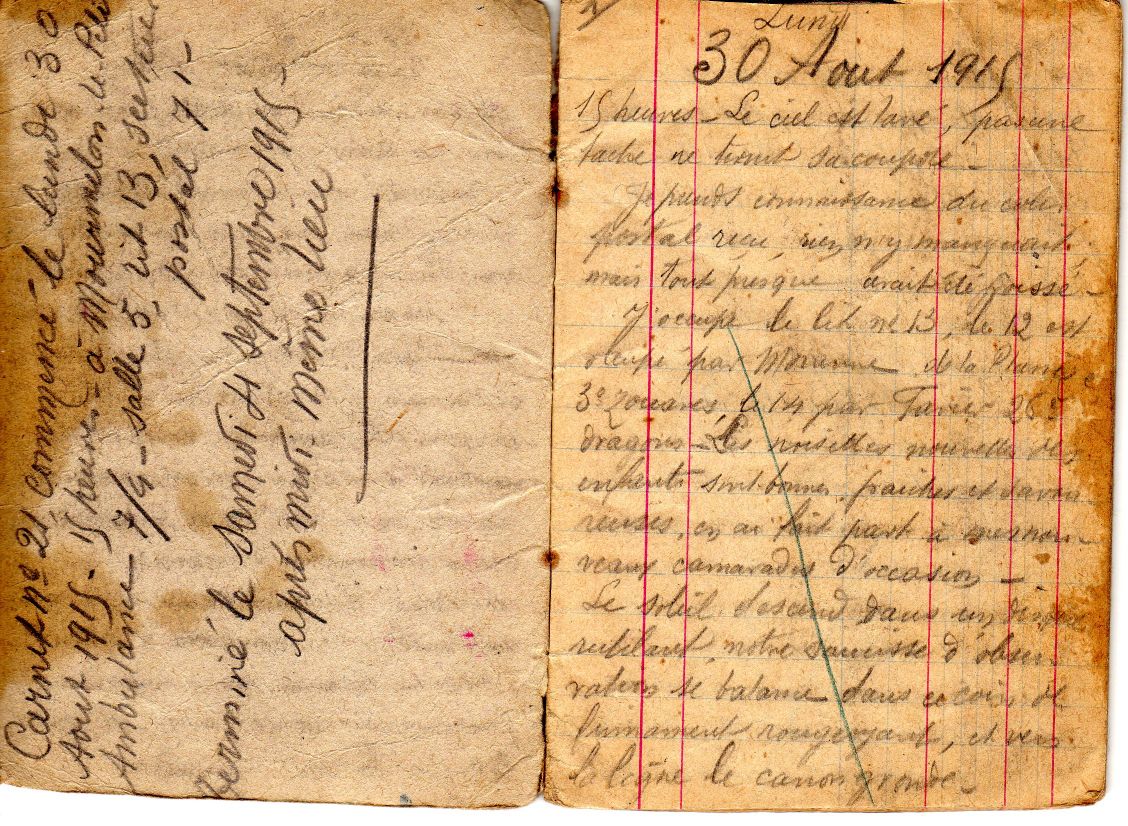 Carnet nº 21 commencé le lundi 30
Aout 1915 - 15 heures - à Mourmelon le Petit
Ambulance 7/4 - salle 5, lit 13, secteur
postal 71 -
Terminé le samedi 4 septembre 1915 -
après midi même lieu
Lundi
30 Aout 1915
15 heures - Le ciel est lavé, pas une
tache ne ternit sa coupole -
Je prends connaissance du colis
postal reçu, rien n'y manquait,
mais tout presque avait été froissé -
J'occupe le lit nº 13, le 12 est
occupé par de la
3e zouaves, le 14 par 26e
dragons - Les noisettes nouvelles des
enfants sont bonnes, fraiches et savou-
reuses, en ai fait part à mes nou-
veaux camarades d'occasion -
Le soleil descend dans un disque
rutilant, notre saucisse d'obser-
vation se balance dans ce coin de
firmament rougeoyant, et vers
la ligne le canon gronde -